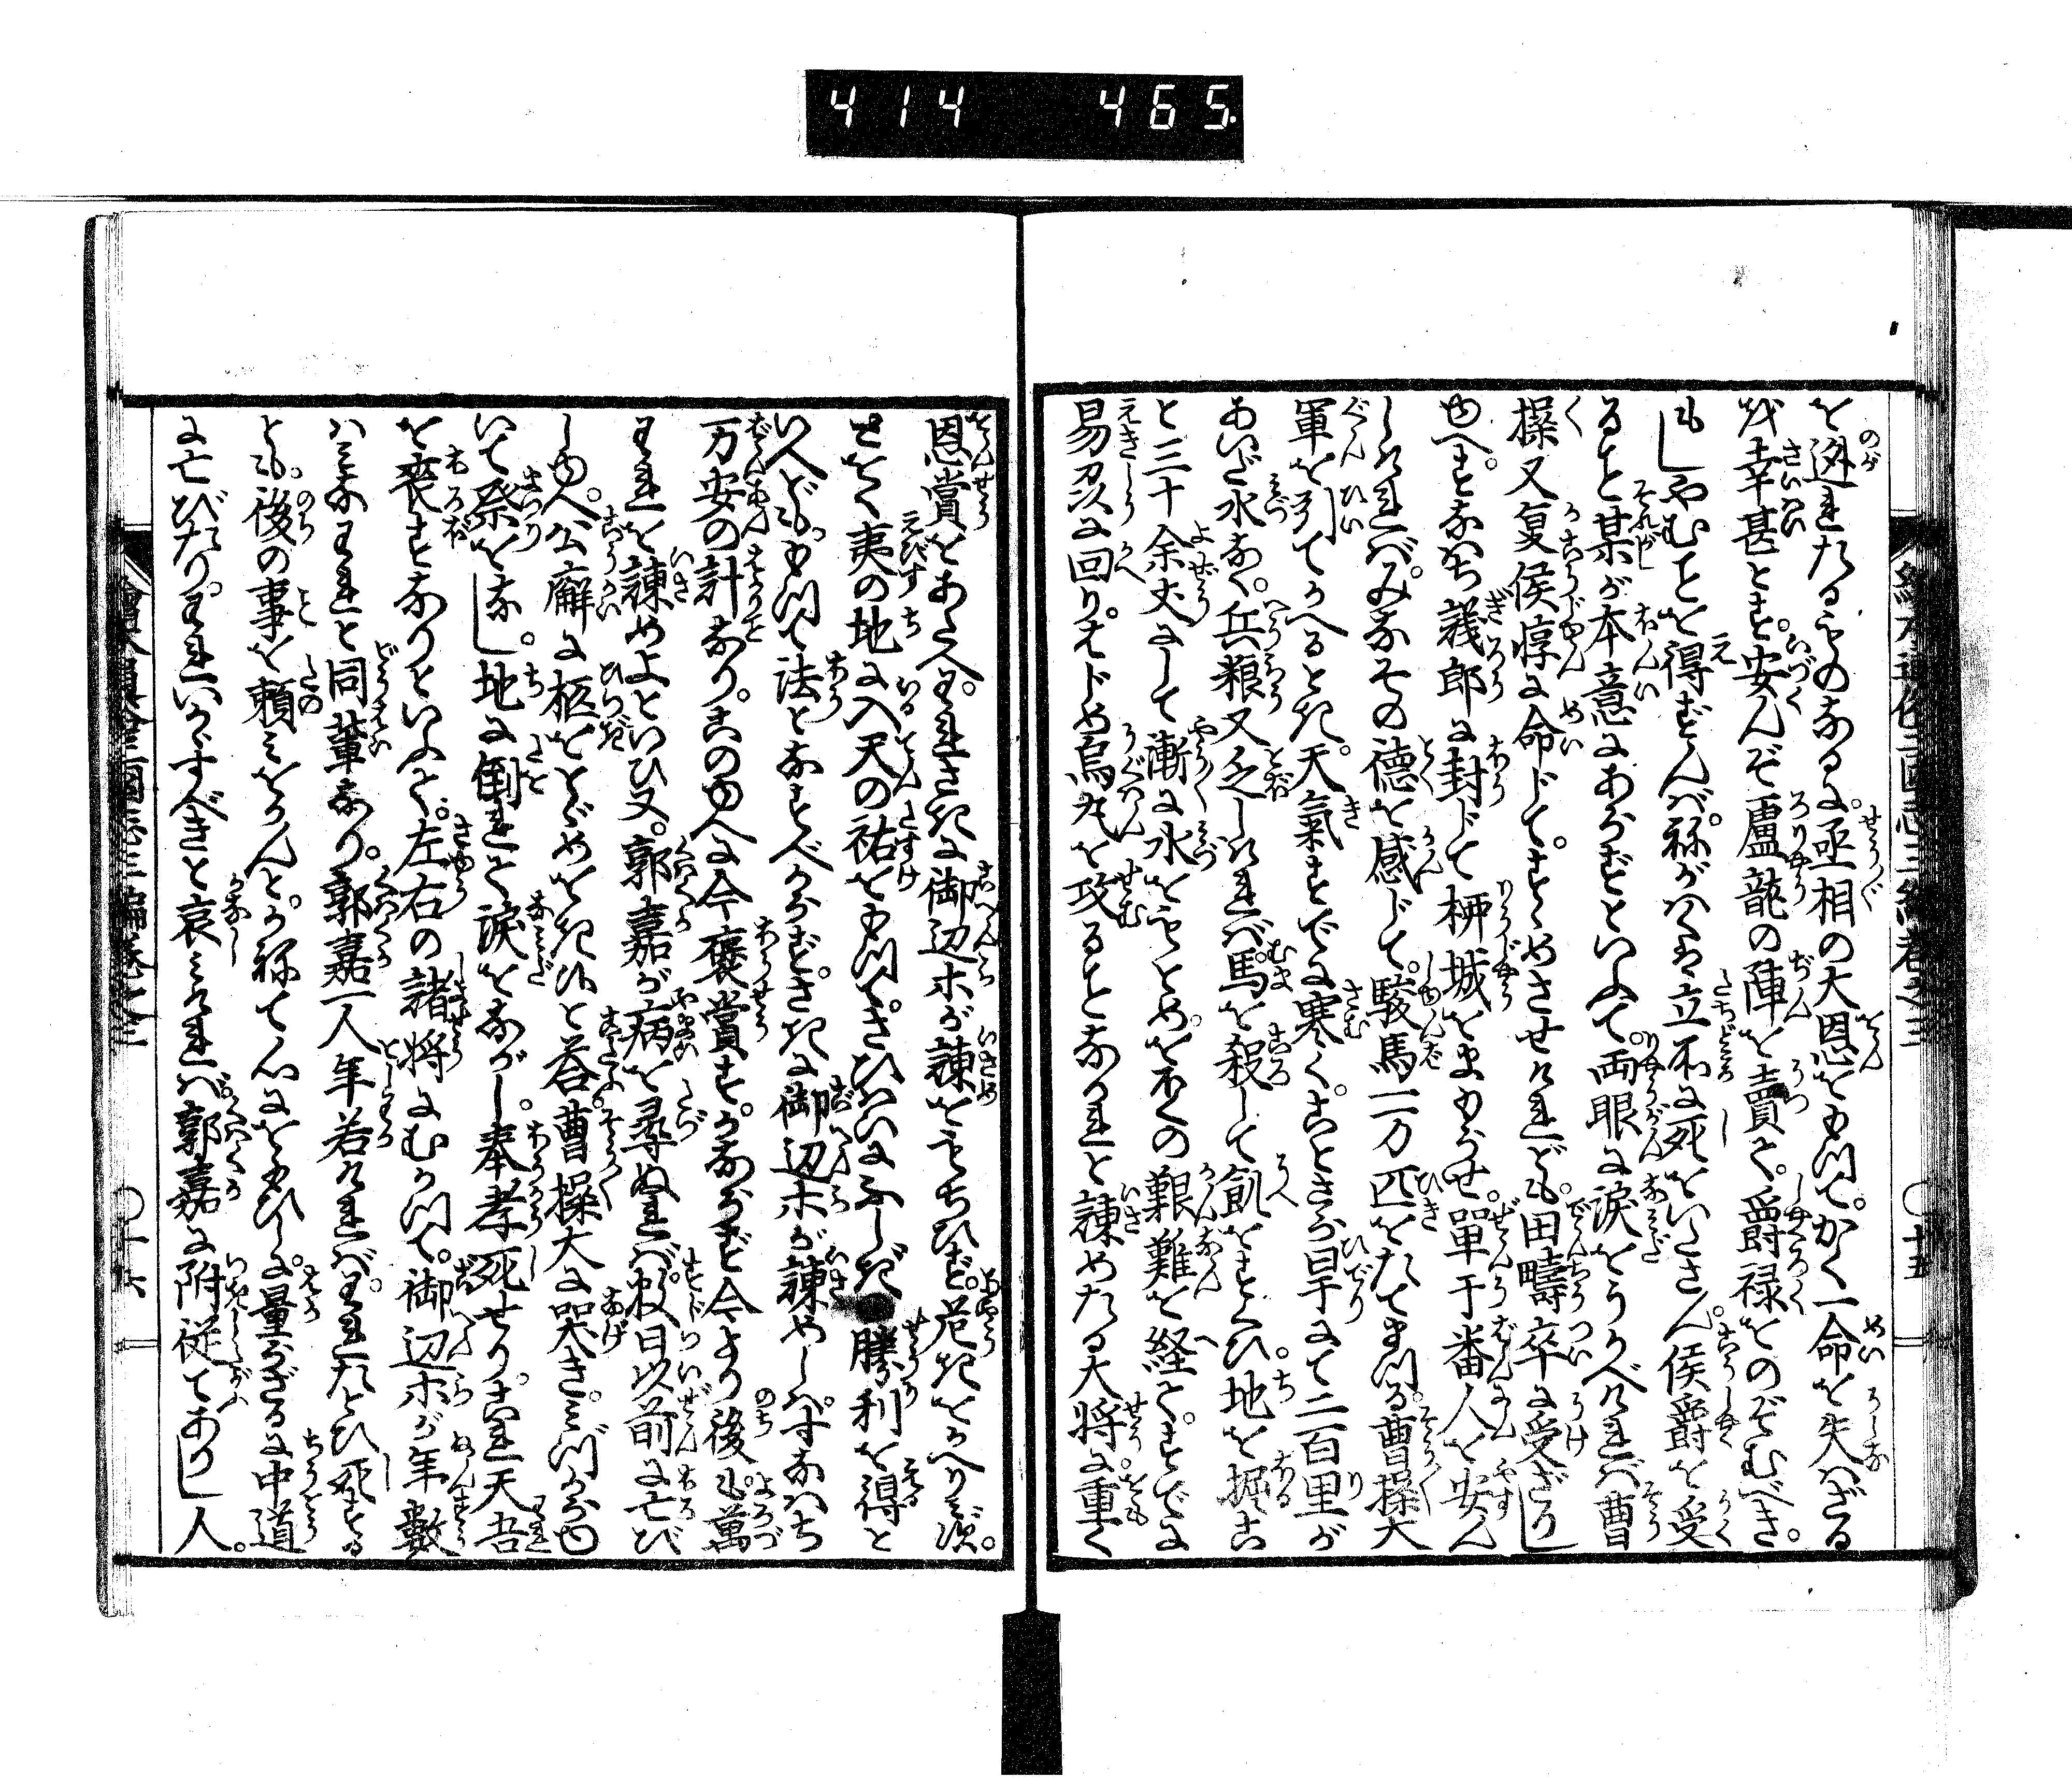 414 465
を迯れたるものなるに。丞相の大恩をもつて。かく一命を失ハざる
さへ幸甚とす。安んぞ盧龍の陣を賣て。爵禄をのぞむべき。
もしやむことを得ずんバ。ねがハくハ立所に死をいたさん。侯爵を受
ること某が本意にあらずといふて。両眼に涙をうかべけれバ曹
操又夏侯惇に命じて。すゝめさせけれども。田疇卒に受ざりし
ゆへ。すなハち議郎に封じて柳城をまもらせ。單于番人を安ん
じけれバ。みなその德を感じて。駿馬一万匹をたてまつる曹操大
軍を引てかへるとき。天氣すでに寒く。ことさら旱にて二百里が
あいだ水なく。兵粮又乏しけれバ馬を殺して飢をすくひ。地を掘こ
と三十余丈にして漸に水をもとめ。をゝくの艱難を経て。すでに
易州に回り。はじめ烏丸を攻ることなかれと諫めたる大将に重く
恩賞をあたへ。われさきに御辺ホが諫をもちひず。危きをかへりミず。
とをく夷の地に入天の祐をもつて。さいハいにふしぎ勝利を得と
いへども。もつて法となすべからず。さきに御辺ホが諫めしハ。すなハち
万安の計なり。このゆへに今褒賞す。かならず今より後も。萬
われを諫めよといひ又。郭嘉が病を尋ぬれバ。數日以前に亡び
しゆへ。公廨に柩をとゞめをき候と荅。曹操大に哭き。ミづからゆ
いて祭をなし。地に倒れて涙をながし。奉孝死せり。これ天吾
を喪すなりといふて。左右の諸将にむかつて。御辺ホが年數
ハミなわれと同輩なり。郭嘉一人年若けれバ。われたとひ死する
とも。後の事を頼ミをかんと。かねて心にをもひしに。量らざるに中道
に亡びたり。われいかゞすべきと哀ミけれバ。郭嘉に附従てありし人。